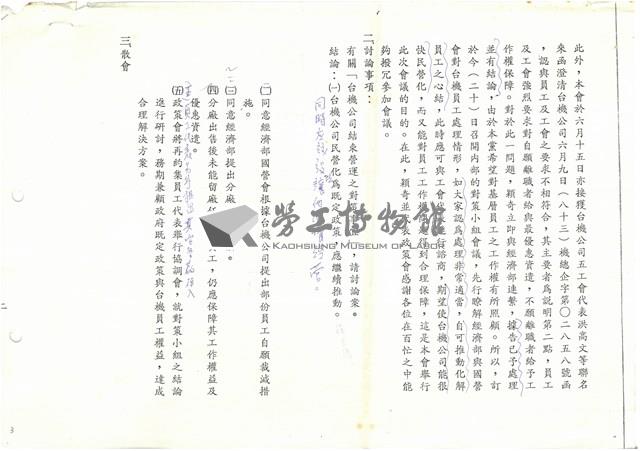 此外,本會於六月十五日亦接獲台機公司五工會代表洪高文等聯名
來函澄清台機公司六月九日(八十三)機總企字第〇二八五八號函
,認與員工及工會之要求不相符合,其主要者為說明第二點,員工
及工會強烈要求對自願離職者給與最優惠資遣,不願離職者給予工
作權保障。對於此一問題,穎奇立即與經濟部連繫,據告已予處理
並有結論,由於本黨希望對基層員工之工作權有所照顧。所以,訂
於今(二十)日召開內部的對策小組會議,先行瞭解經濟部與國營
會對台機員工處理情形,如大家認為處理非常適當,自可推動化解
員工之心結,此時應可與工會進行諮商,期望使台機公司能很
快民營化,而又能對員工工作權得到合理保障,這是本會舉行
此次會議的目的。在此,穎奇並代表政策會感謝各位在百忙之中能
夠撥冗參加會議。
二、討論事項:
有關「台機公司結束營運之對策」,請討論案。
結論:㈠台機公司民營化為既定政策,應繼續推動。
㈡同意經濟部國營會根據台機公司提出部份員工自願裁減措
施。
㈢同意經濟部提出分廠
㈣分廠出售後未能留廠工,仍應保障其工作權益及
優惠資遣。
㈤政策會將再約集員工代表舉行協調會,就對策小組之結論
進行研討,務期兼顧政府既定政策與台機員工權益,達成
合理解決方案。
三、散會
勞工博物館
KAOHSIUNG MUSEUM OF LABOR
3